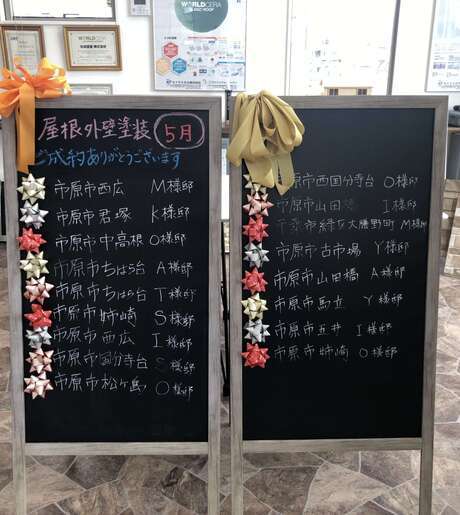 WORLDCERA
屋根外壁塗装 5月
ご成約ありがとうございます
市原市西広 M様邸
市原市君塚 K様邸
市原市中高根 O様邸
市原市ちはら台 A様邸
市原市ちはら台 T様邸
市原市姉崎 S様邸
市原市西広 I様邸
市原市国分寺台 S様邸
市原市松ヶ島 O様邸
市原市西国分寺台 O様邸
市原市山田 I様邸
千葉市緑区大膳野町 M様邸
市原市古市場 Y様邸
市原市山田橋 A様邸
市原市馬立 Y様邸
市原市五井 I様邸
市原市姉崎 O様邸